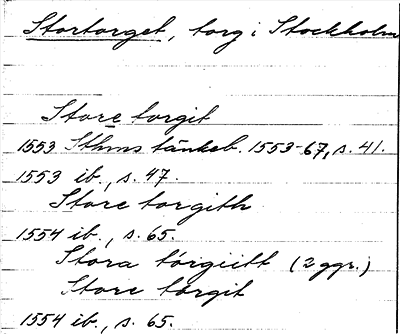 Stortorget, torg i Stockholm
Store torgit
1553 Sthms tänkeb. 1553-67, s. 41.
1553 ib., s. 47.
Store torgith
1554 ib., s. 65.
Stora torgiitt (2 ggr.)
Store torgit
1554 ib., s. 65.